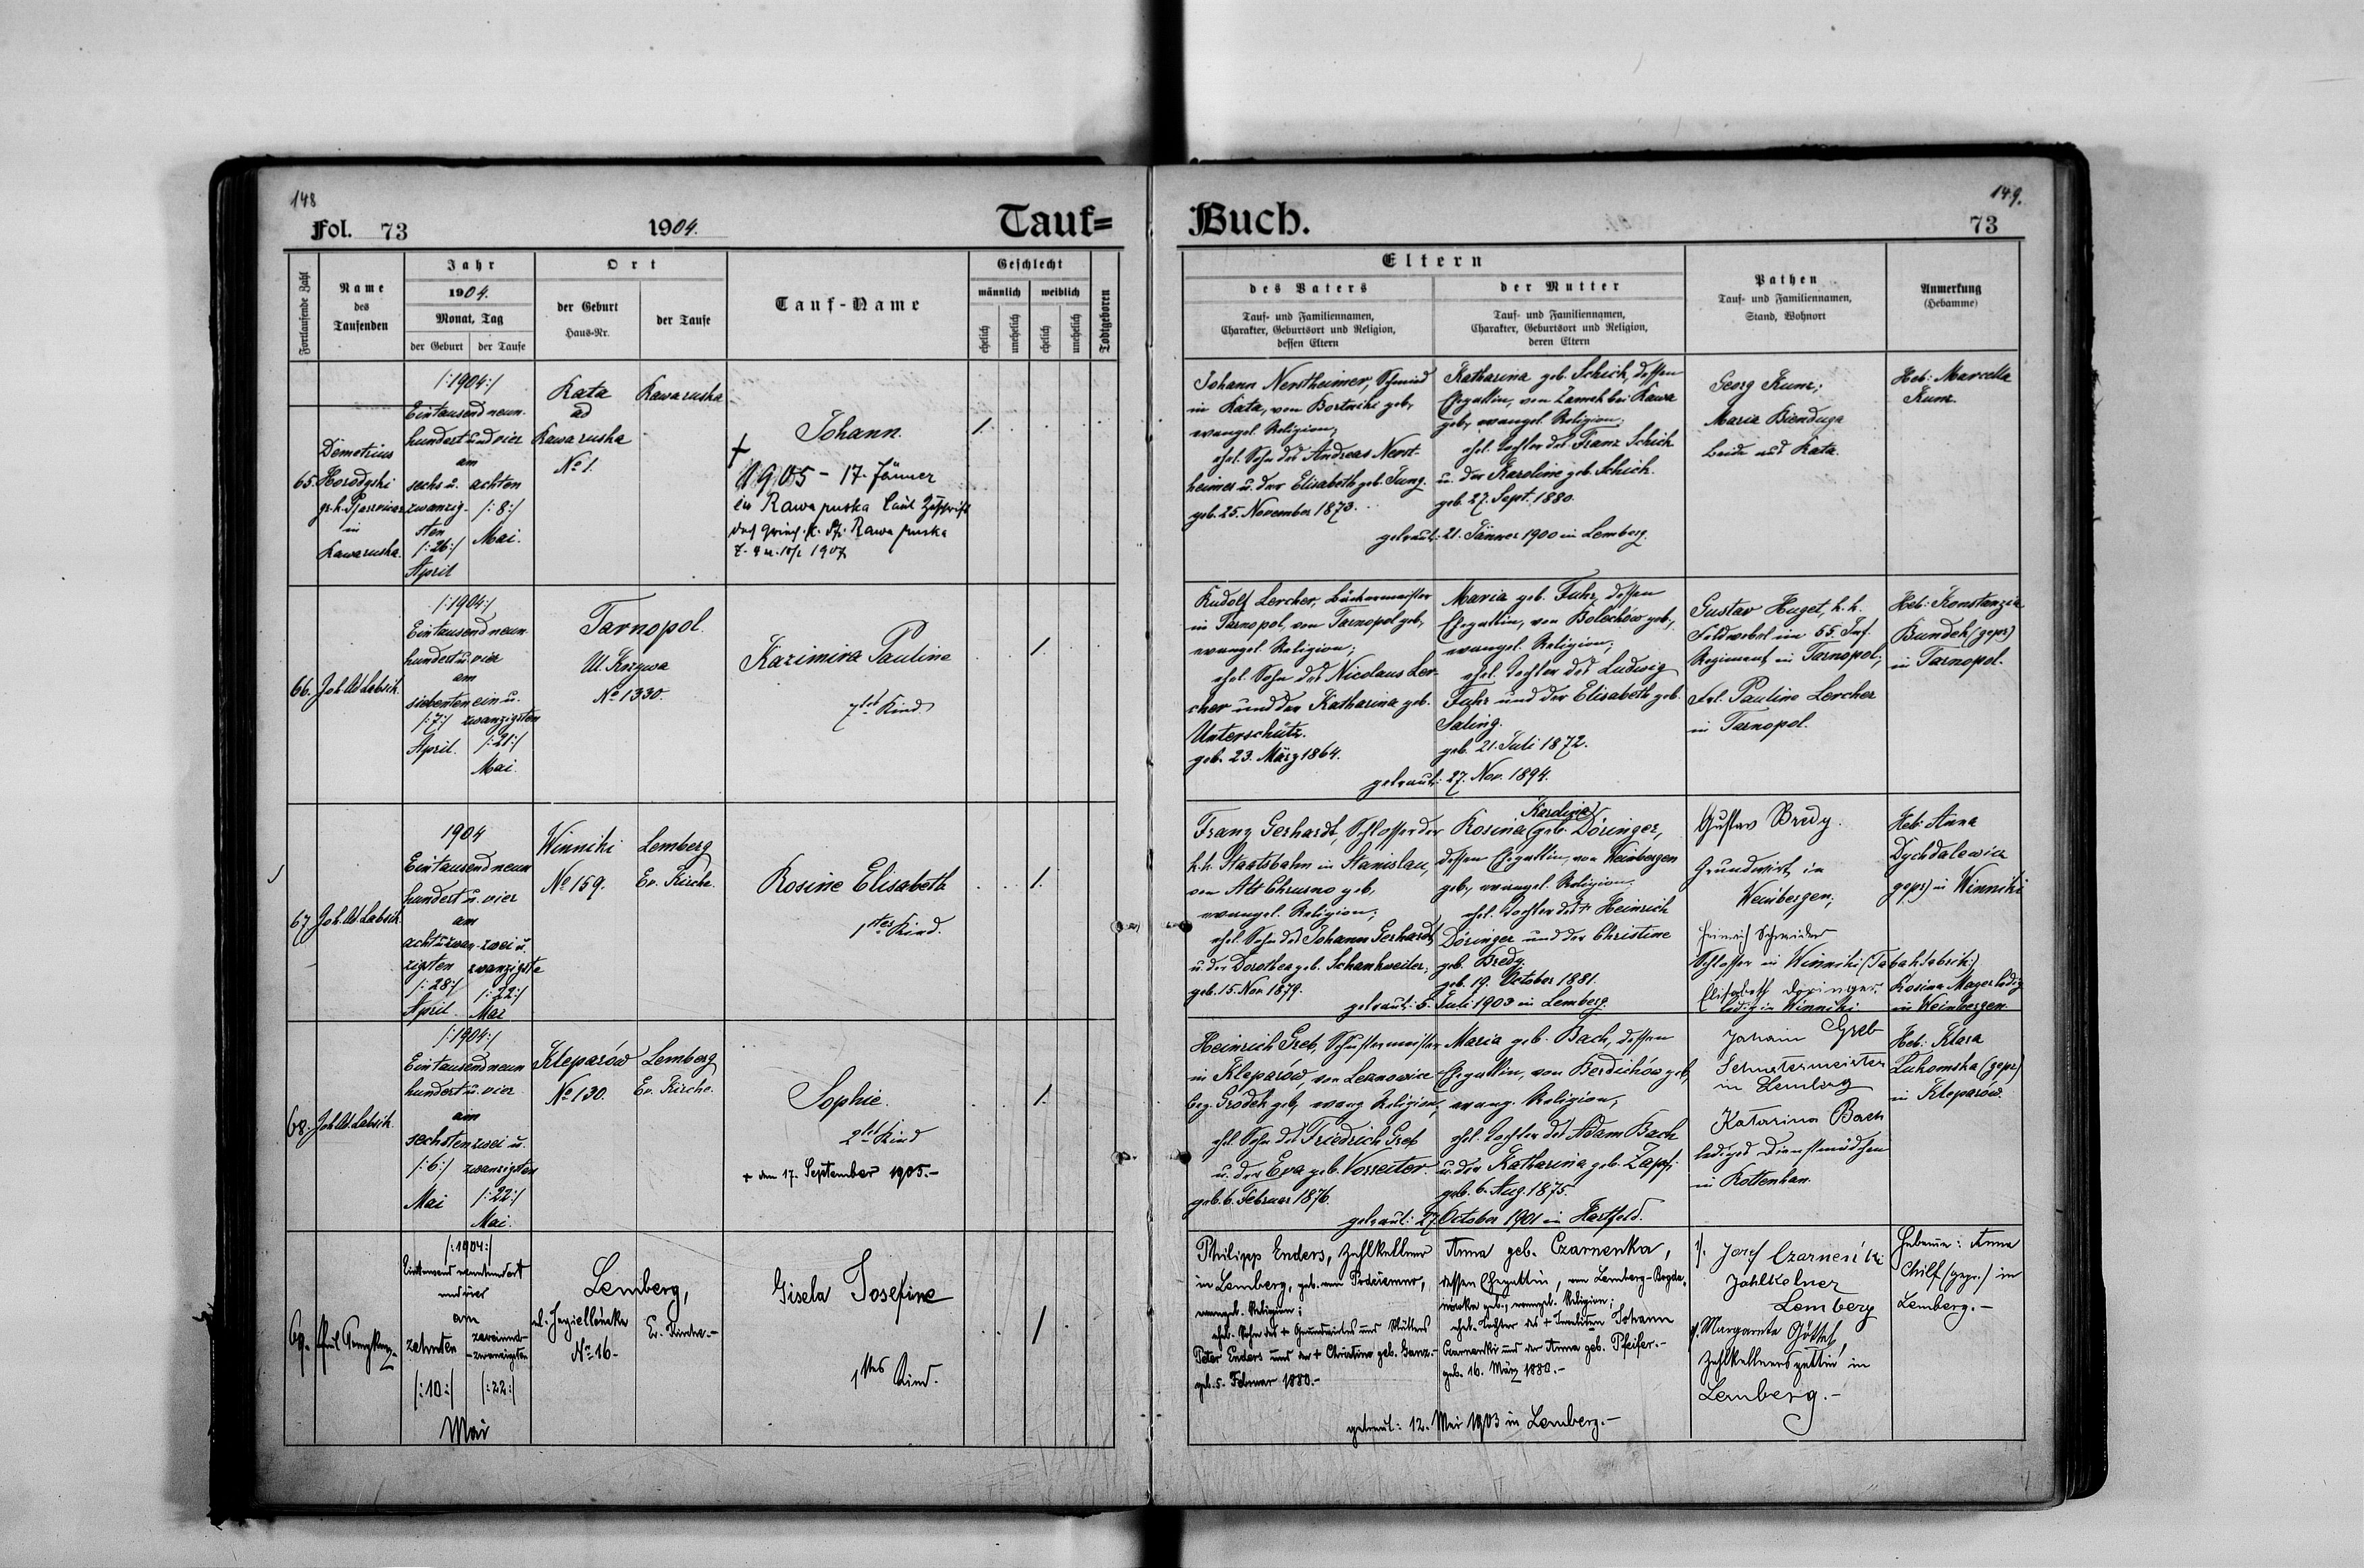 148
Fol. 73
1904.
Tauf=
Fortlaufende Zahl
Name
des
Taufenden
Jahr
1904.
Monat, Tag
der Geburt
der Taufe
Ort
der Geburt
Haus-Nr.
der Taufe
Tauf-Name
Geschlecht
männlich
weiblich
ehelich
unehelich
ehelich
unehelich
Todtgeboren
65.
Demetrius
Horodyski
gr. k.
in
Rawa ruska
/:1904:/
Eintausend neun-
hundert und vier
am
sechs u. achten
zwanzig- /:8:/
sten Mai.
/:26:/
April
Rata
ad
Rawa ruska
No 1.
Rawa ruska
Johann.
+
1905 - 17. Jänner
in Rawa ruska laut Zuschrift
des
1.
66.
Joh. Ad. Labsik.
/:1904:/
Eintausend neun-
hundert u. vier
am
siebenten ein u.
/:7:/ zwanzigsten
April. /:21:/
Mai.
Tarnopol.
Ul. Krzywa
No 1330.
Kazimira Pauline
7tes Kind.
1.
67.
Joh. Ad. Labsik.
1904
Eintausend neun
hundert u. vier
am
acht u. zwan- zwei u.
zigsten zwanzigste
/:28:/ /:22:/
April. Mai
Winniki
No 159.
Lemberg
Ev. Kirche.
Rosine Elisabeth
1tes Kind.
1.
68.
Joh. Ad. Labsik.
/:1904:/
Eintausend neun
hundert u. vier
am
sechsten zwei u.
/:6:/ zwanzigsten
Mai /:22:/
Mai.
Kleparów
No 130.
Lemberg
Ev. Kirche.
Sophie.
2tes Kind
+ den 17. September 1905.-
1.
69.
/:1904:/
Eintausend neunhundert
und vier
am
zehnten zweiund-
zwanzigsten
/:10:/ /:22:/
Mai
Lemberg,
ul. Jagiellońska
No 16-
Ev. Kirche.-
Gisela Josefine
1tes Kind.
1
149.
Buch.
73
Eltern
des Vaters
Tauf- und Familiennamen,
Charakter, Geburtsort und Religion,
dessen Eltern
der Mutter
Tauf- und Familiennamen,
Charakter, Geburtsort und Religion,
deren Eltern
Pathen
Tauf- und Familiennamen,
Stand, Wohnort
Anmerkung
(Hebamme)
Johann Nerstheimer, Schmied
in Rata, von Bortniki geb,
evangel. Religion;
ehel. Sohn des Andreas Nerst-
heimer u. der Elisabeth geb. Jung.
geb. 25. November 1873.
Katharina geb. Schick, dessen
Ehegattin, von Zamek bei Rawa
geb, evangel. Religion;
ehel. Tochter des Franz Schick
u. der Karoline geb. Schick.
geb. 27. Sept. 1880.
getraut: 21. Jänner 1900 in Lemberg.
Georg Kunz;
Maria Bienduga
beide aus Rata.
Heb: Marcella
Kunz.
Rudolf Lercher, Bäckermeister
in Tarnopol, von Tarnopol geb,
evangel. Religion;
ehel. Sohn des Nicolaus Ler-
cher und der Katharina geb.
Unterschütz.
geb. 23. März 1864.
Maria geb. Fuhr, dessen
Ehegattin, von Bolechów geb,
evangel. Religion;
ehel. Tochter des Ludwig
Fuhr und der Elisabeth geb.
Saling.
geb. 21. Juli 1872.
getraut: 27. Nov. 1894.
Gustav Huget, k. k.
Feldwebel im 55. Inf.
Regiment in Tarnopol;
Frl. Pauline Lercher
in Tarnopol.
Heb: Konstanzia
Bundek (gepr)
in Tarnopol.
Franz Gerhardt, Schlosser der
k. k. Staatsbahn in Stanislau,
von Alt Chrusno geb,
evangel. Religion;
ehel. Sohn des Johann Gerhardt
u. der Dorothea geb. Schankweiler,
geb. 15. Nov. 1879.
Karoline
Rosina geb. Döringer,
dessen Ehegattin, von Weinbergen
geb, evangel. Religion,
ehel. Tochter des + Heinrich
Döringer und der Christine
geb. Bredy.
geb. 19. October 1881.
getraut: 5. Juli 1903 in Lemberg.
Gustav Bredy.
Grundwirt in
Weinbergen;
Heinrich Schneider
Schlosser in Winniki (Tabakfabrik)
Elisabeth Döringer
ledig in Winniki.
Heb: Anna
Dychdalewicz
(gepr) in Winniki
Rosina Mager ledig
in Weinbergen.
Heinrich Greb, Schustermeister
in Kleparów, von Leznowice
bez. Gródek geb, evang. Religion,
ehel. Sohn des Friedrich Greb
u. der Eva geb. Vorreiter.
geb. 6. Februar 1876.
Maria geb. Bach, dessen
Ehegattin, von Berdichów geb,
evang. Religion,
ehel. Tochter des Adam Bach
u. der Katharina geb. Zapf.
geb. 6. Aug. 1875.
getraut: 27 October 1901 in Hartfeld.
Johann Greb
Schustermeister
in Lemberg
Katarina Bach
lediges Dienstmädchen
in Rottenhan.
Heb: Klara
Lukomska (gepr)
in Kleparów.
Philipp Enders, Zahlkellner
in Lemberg, geb. von
evangel. Religion;
ehel. Sohn des + Grundwirtes und Müllers
Peter Enders und der + Christine geb. Ganz.-
geb. 5. Februar 1880.-
Anna geb. Czarnenka,
dessen Ehegattin, von Lemberg-Bogda-
nówka geb., evangel. Religion;
ehel. Tochter des + Johann
Czarnenki und der Anna geb. Pfeifer.-
geb. 16. März 1880.-
getraut: 12. Mai 1903 in Lemberg.-
1/. Josef Czarnenki
Zahlkelner
Lemberg
2/. Margarete Göttel,
Zahlkellnersgattin in
Lemberg.-
Hebamme: Anna
Chilf (gepr.) in
Lemberg.-